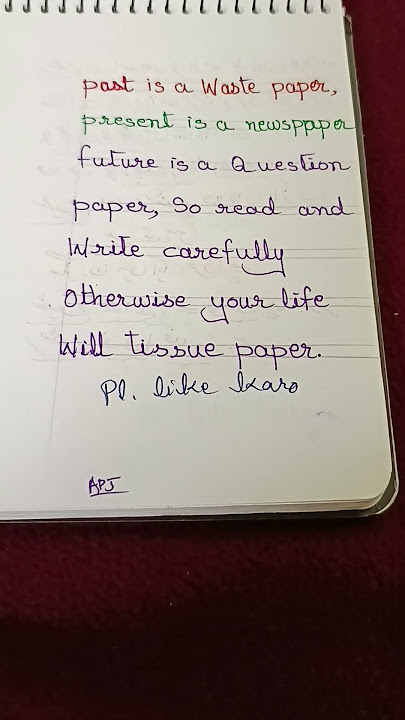 past is a Waste paper,
present is a newspaper
future is a Question
paper, So read and
Write carefully
Otherwise your life
Will tissue paper.
Pl. like karo
APJ